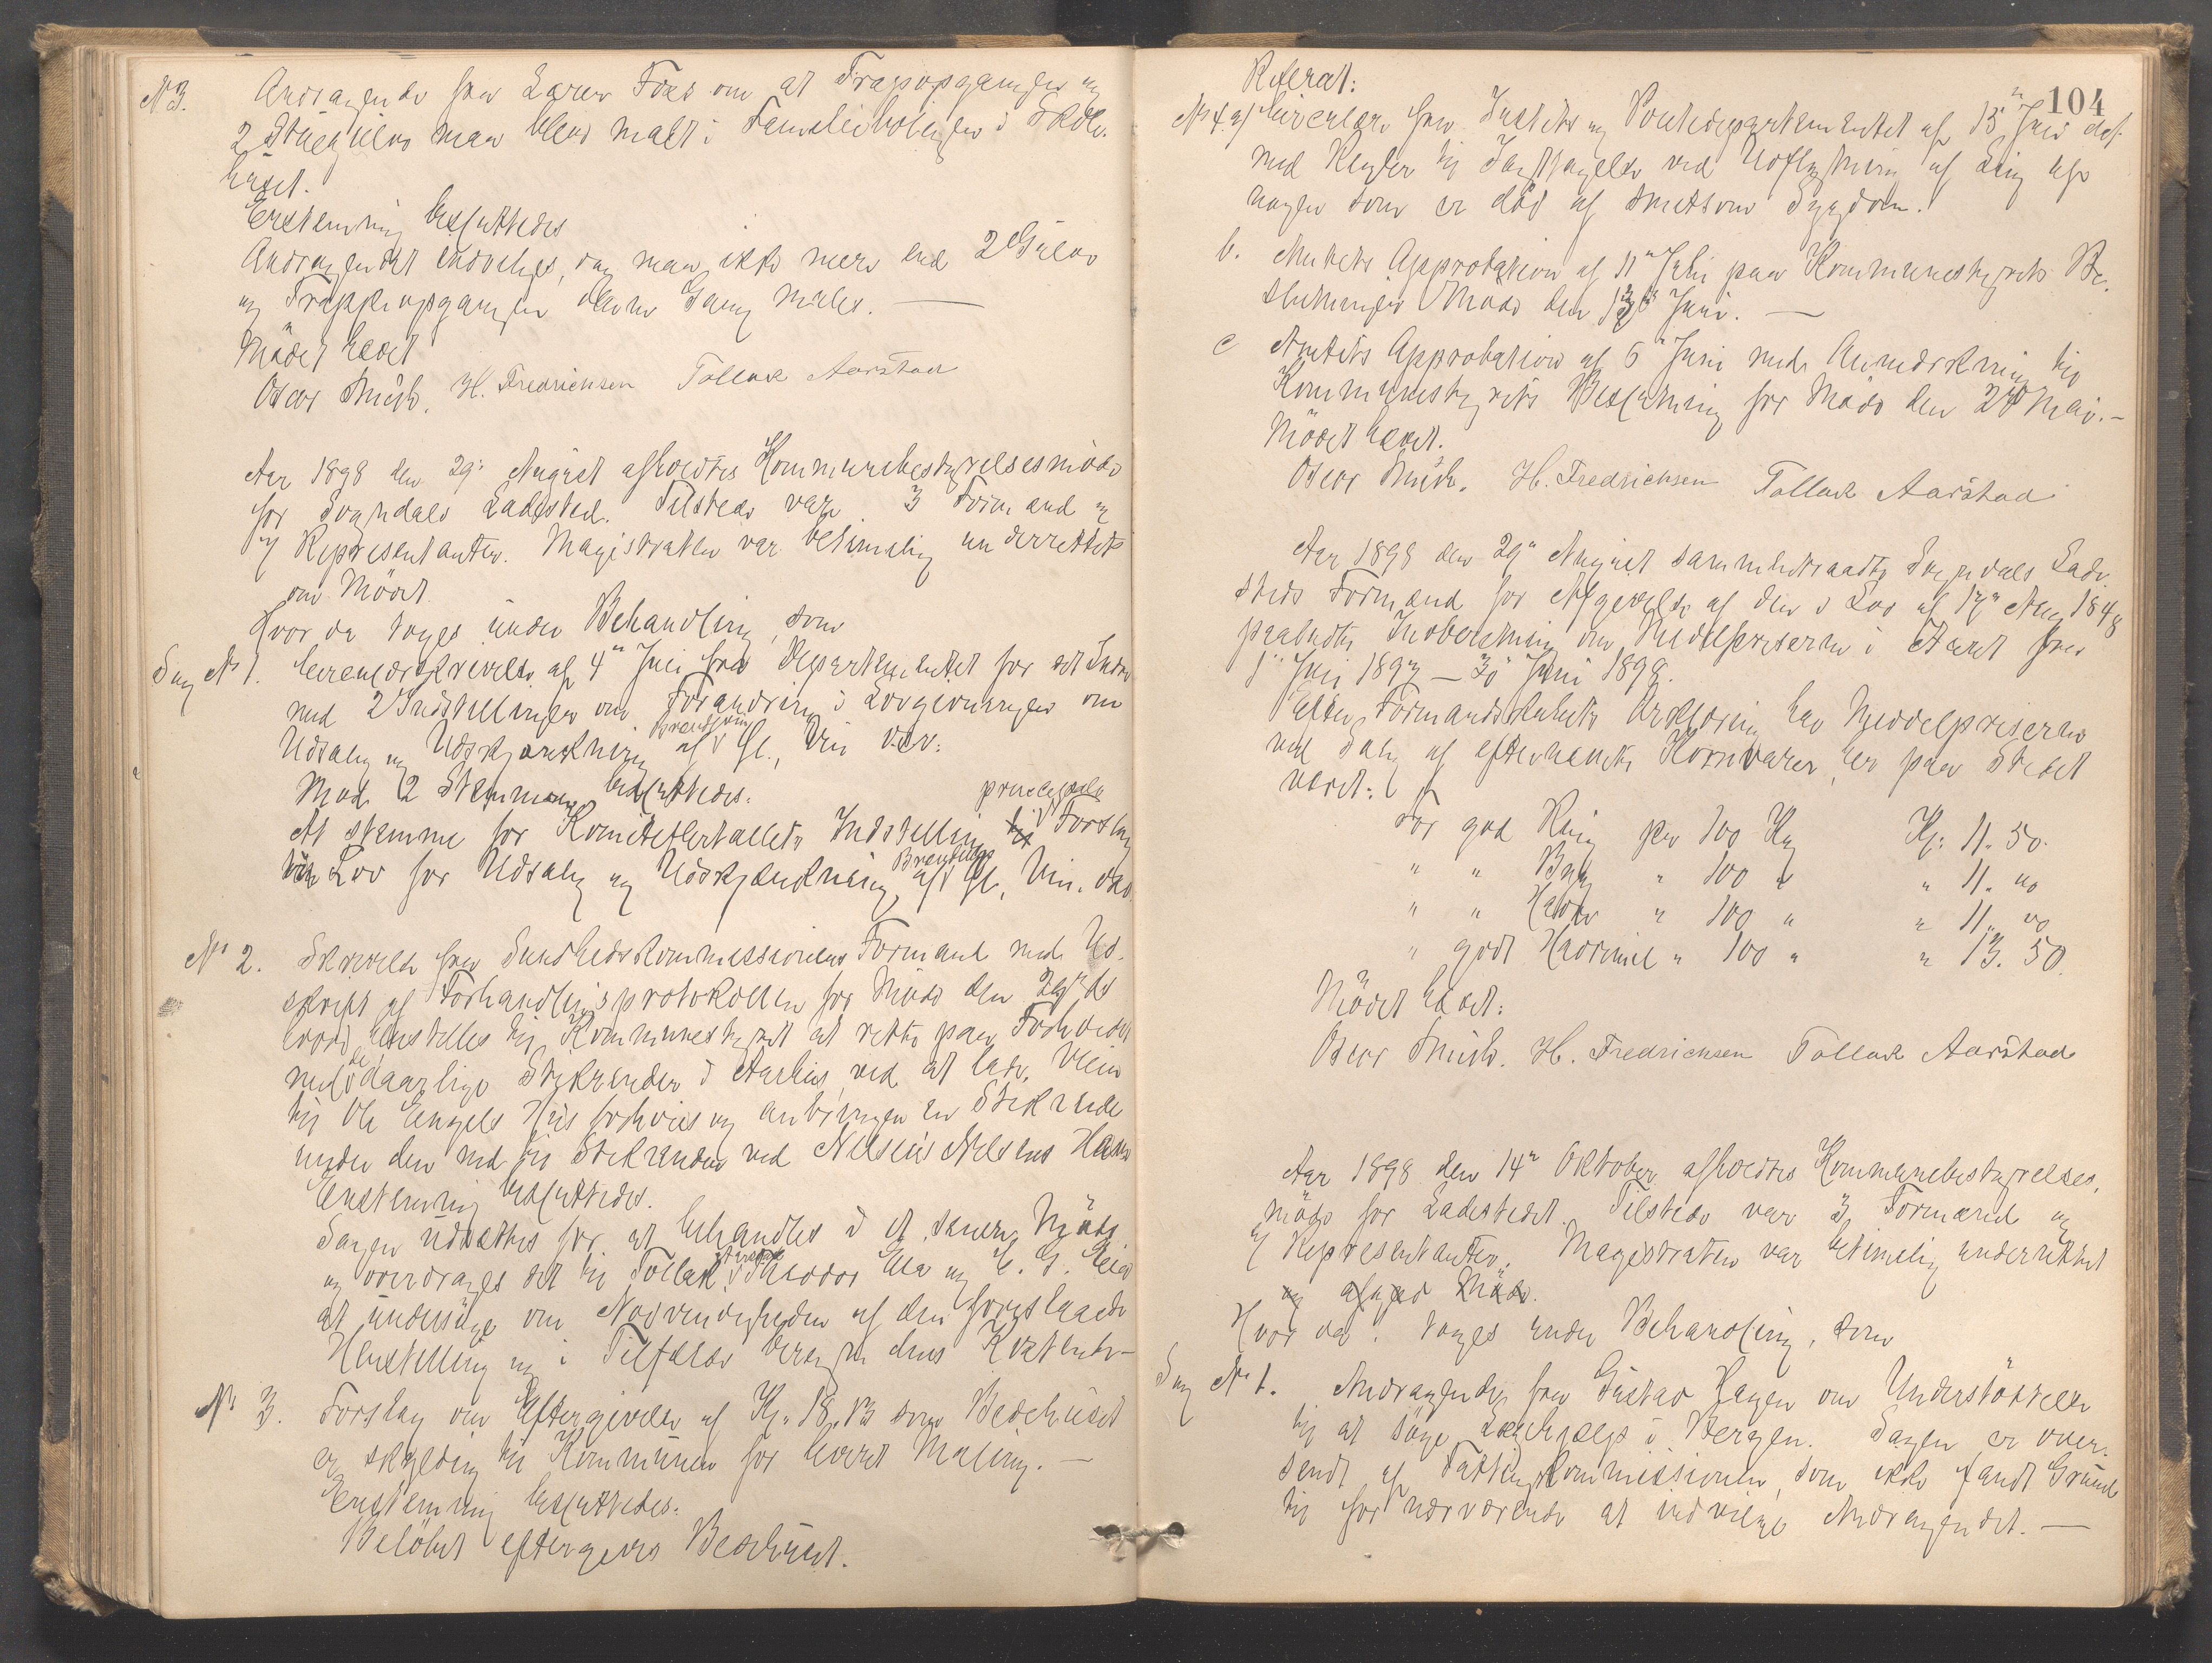 No 3. Andragende fra Lærer Foss om at Trapopgangen og
2 Stuegulve maa blive malt i Familieboligen i Skole-
huset.
Enstemmig besluttedes
Andragendet indvilges, dog maa ikke mere end 2 Gulve
og Trappeopgangen samt Gang males. —
Mödet hævet
Oscar Munch. H. Fredrichsen Tollak Aarstad
Aar 1898 den 29de August afholdtes Kommunebestyrelsesmöde
for Sogndals Ladested. Tilstede var 3 Formænd og
7 Repræsentanter. Magistraten var betimelig underrettet
om Mödet.
Hvor da toges under Behandling, som
Sag No 1. Circulærskrivelse af 4de Juli fra Departementet for det Indre
med 2 Indstillinger om Forandring i Lovgivningen om
Udsalg og Udskjænkning af Brændevin Øl, Vin m.v.
Mod 2 Stemmer besluttedes:
At stemme for Komiteflertallets Indstilling principale Forslag
til Lov for Udsalg og Udskjænkning af Brændevin Øl, Vin.
No 2. Skrivelse fra Sundhedskommissionens Formand med Ud-
skrift af Forhandlingsprotokollen for Möde den ds
hvori henstilles til Kommunestyret at rette paa Forholdet
med de daarlige Stikrender i ved at lade Veien
til Ole Engels Hus og anbringe en Stikrende
under den ned til Stikrenden ved Nilsens Have
Enstemmig besluttedes.
Sagen udsættes for at behandles i et senere Möde
og overdrages det til Tollak Aarstad Theodor Elle og E. G. Eie
at undersöge om Nödvendigheden af den foreslaaede
Henstilling og i Tilfælde beregne dens Kostende—
No 3. Forslag om Eftergivelse af Kr. 18.13 som Bedehuset
er skyldig til Kommunen for Maling. —
Enstemmig besluttedes:
Belöbet eftergives Bedehuset.
104
Referat:
No 4. a) Circulære fra Justits og Politidepartementet af 15de Juni
med Regler til Iagttagelse ved Udflytning af Lig efter
nogen som er död af smitsom Sygdom.
b. Amtets Approbation af 11te Juli paa Kommunestyrets Be-
slutninger i Möde den Juni. —
c Amtets Approbation af 6te Juni med Anmærkning til
Kommunestyrets Beslutning for Möde den Mai. —
Mödet hævet.
Oscar Munch. H. Fredrichsen Tollak Aarstad
Aar 1898 den 29de August sammentraadte Sogndals Lade-
steds Formænd for Afgivelse af den i Lov af 17de Aug 1848
paabudte Indberetning om Middelpriserne i Aaret fra
1ste Juli 1897 — 30te Juni 1898.
Efter Formandskabets Erklæring har Middelpriserne
ved Salg af efternævnte Kornvarer her paa Stedet
været:
For god Rug per 100 Kg Kr. 11. 50.
" " Byg " 100 " " 11. 00
" " Havre " 100 " " 11. 00
" godt Havremel " 100 " " 13. 50.
Mödet hævet:
Oscar Munch. H. Fredrichsen Tollak Aarstad
Aar 1898 den 14de Oktober afholdtes Kommunebestyrelses-
möde for Ladestedet. Tilstede var 3 Formænd og
7 Repræsentanter. Magistraten var betimelig underrettet
Hvor da toges under Behandling, som
Sag No 1. Andragende fra Gustav Hagen om Understöttelse
til at söge Lægehjælp i Bergen. Sagen er over-
sendt af Fattigkommissionen, som ikke fandt Grund
til for nærværende at indvilge Andragendet. —